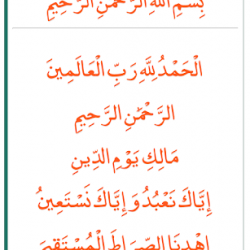 بِسْمِ اللَّهِ الرَّحْمَٰنِ الرَّحِيمِ
الْحَمْدُ لِلَّهِ رَبِّ الْعَالَمِينَ
الرَّحْمَٰنِ الرَّحِيمِ
مَالِكِ يَوْمِ الدِّينِ
إِيَّاكَ نَعْبُدُ وَ إِيَّاكَ نَسْتَعِينُ
اهْدِنَا الصِّرَاطَ الْمُسْتَقِيمَ